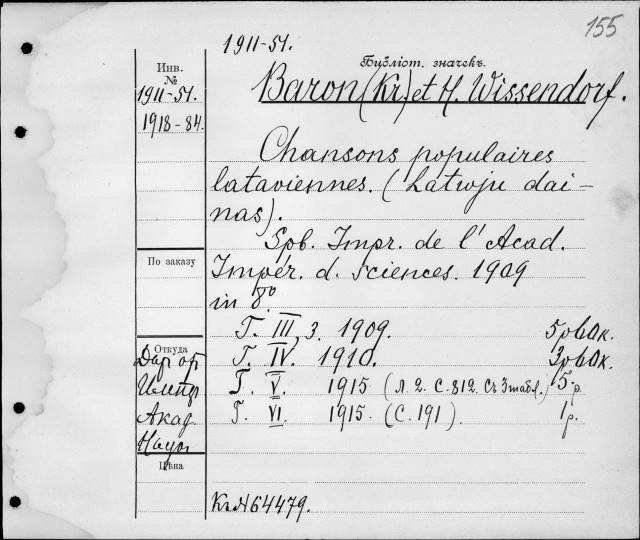 155
1911-51.
Инв.
№
Бубліот. значекъ.
1911-51.
Baron (Kr.) et H. Wissendorf.
1918-84.
Chansons populaires
lataviennes. (Latwju dai-
nas).
Spb. Impr. de l'Acad.
По заказу
Impér. d. sciences. 1909
in 8º
T. III, 3. 1909.
Откуда
Даръ от
T. IV. 1910.
Импер
T. V. 1915 (Л. 2. С. 812. Съ 3 табл.) 5 р.
Акад.
T. VI. 1915 (С. 191). 1 р.
Наук
Цѣна
Къ № 64479.